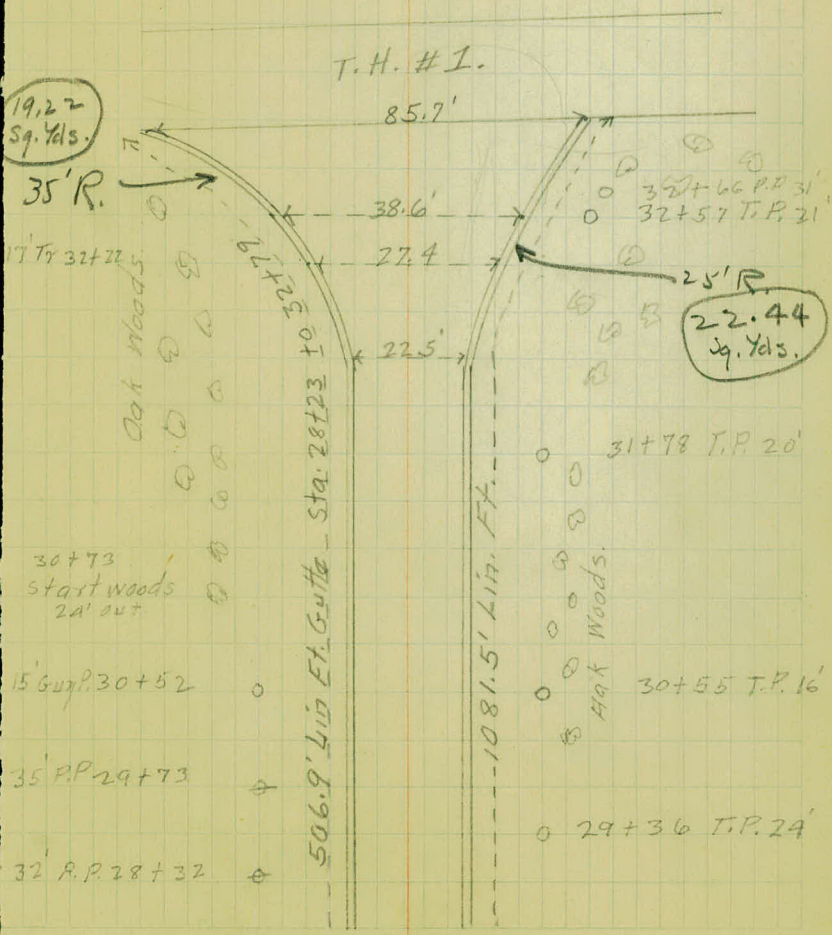 T.H. #1.
19.22
Sq. Yds.
85.7'
35' R.
38.6'
32+66 P.P. 31'
32+57 T.P. 21'
17' Tr 32+22
27.4
25' R.
22.44
Sq. Yds.
22.5'
Oak Woods.
506.9' Lin Ft. Gutte Sta. 28+23 to 32+79
1081.5' Lin. Ft.
31+78 T.P. 20'
30+73
Start woods
24' out
Oak Woods.
15' Guy P. 30+52
30+55 T.P. 16'
35' P.P. 29+73
29+36 T.P. 24'
32' P.P. 28+32